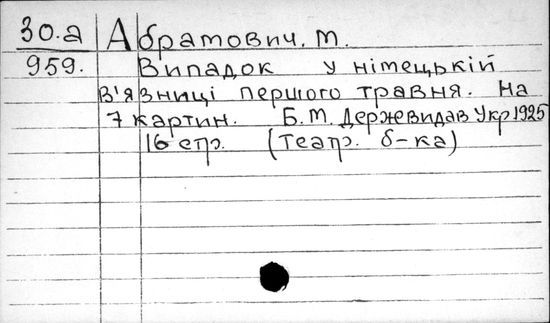 30.а Абратович. М.
959. Випадок у німецькій
в'язниці першого травня. На
7 картин. Б.М. Державидав Укр 1925
16 стр. (Театр. б-ка)